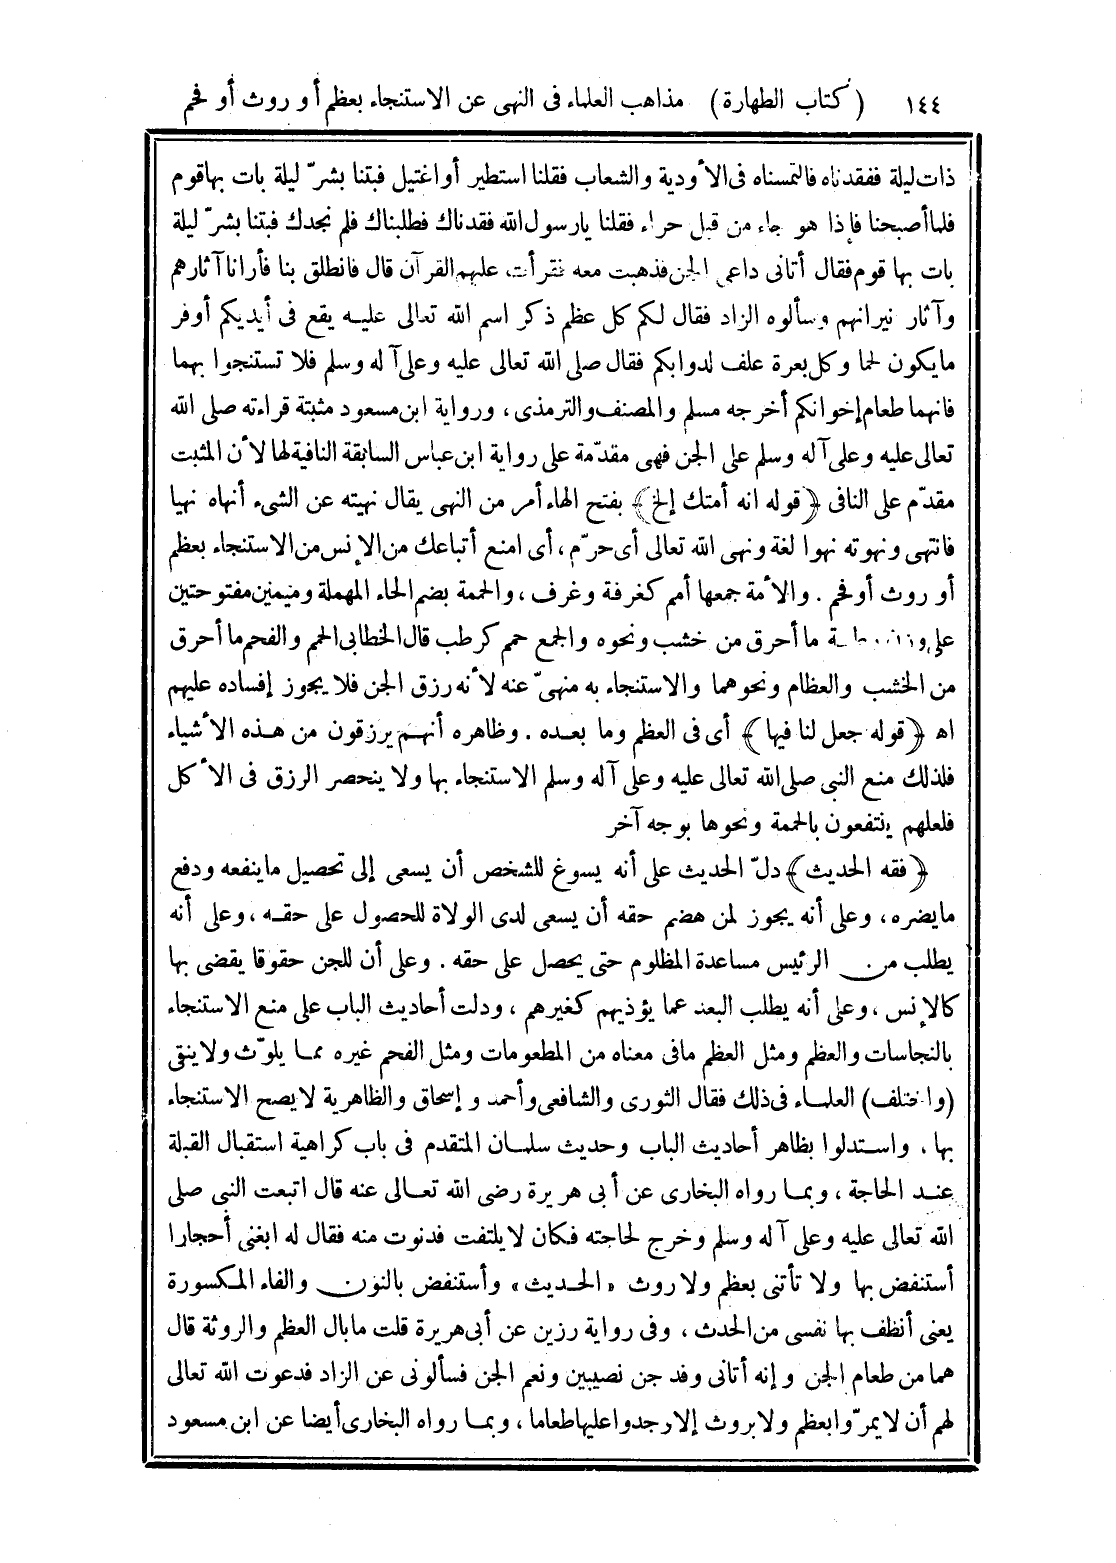 ١٤٤ (كتاب الطهارة) مذاهب العلماء فى النهى عن الاستنجاء بعظم أو روث أو فحم
ذات ليلة ففقدناه فالتمسناه فى الأودية والشعاب فقلنا استطير أو اغتيل فبتنا بشرّ ليلة بات بها قوم
فلما أصبحنا فإذا هو جاء من قبل حراء فقلنا يارسول الله فقدناك فطلبناك فلم نجدك فبتنا بشرّ ليلة
بات بها قوم فقال أتانى داعى الجن فذهبت معه فقرأت عليهم القرآن قال فانطلق بنا فأرانا آثارهم
وآثار نيرانهم وسألوه الزاد فقال لكم كل عظم ذكر اسم الله تعالى عليه يقع فى أيديكم أوفر
مايكون لحما وكل بعرة علف لدوابكم فقال صلى الله تعالى عليه وعلى آله وسلم فلا تستنجوا بهما
فانهما طعام إخوانكم أخرجه مسلم والمصنف والترمذى، ورواية ابن مسعود مثبتة قراءته صلى الله
تعالى عليه وعلى آله وسلم على الجن فهى مقدّمة على رواية ابن عباس السابقة النافية لها لأن المثبت
مقدّم على النافى ﴿قوله انه أمتك إلخ﴾ بفتح الهاء أمر من النهى يقال نهيته عن الشىء أنهاه نهيا
فانتهى ونهوته نهوا لغة ونهى الله تعالى أى حرّم، أى امنع أتباعك من الإنس من الاستنجاء بعظم
أو روث أو فحم. والأمة جمعها أمم كغرفة وغرف، والحممة بضم الحاء المهملة وميمين مفتوحتين
على وزن ما أحرق من خشب ونحوه والجمع حمم كرطب قال الخطابى الحمم والفحم ما أحرق
من الخشب والعظام ونحوهما والاستنجاء به منهىّ عنه لأنه رزق الجن فلا يجوز إفساده عليهم
اه ﴿قوله جعل لنا فيها﴾ أى فى العظم وما بعده. وظاهره أنهم يرزقون من هذه الأشياء
فلذلك منع النبى صلى الله تعالى عليه وعلى آله وسلم الاستنجاء بها ولا ينحصر الرزق فى الأكل
فلعلهم ينتفعون بالحممة ونحوها بوجه آخر
﴿فقه الحديث﴾ دلّ الحديث على أنه يسوغ للشخص أن يسعى إلى تحصيل ماينفعه ودفع
مايضره، وعلى أنه يجوز لمن هضم حقه أن يسعى لدى الولاة للحصول على حقه، وعلى أنه
يطلب من الرئيس مساعدة المظلوم حتى يحصل على حقه. وعلى أن للجن حقوقا يقضى بها
كالإنس، وعلى أنه يطلب البعد عما يؤذيهم كغيرهم، ودلت أحاديث الباب على منع الاستنجاء
بالنجاسات والعظم ومثل العظم مافى معناه من المطعومات ومثل الفحم غيره مما يلوّث ولاينقى
(واختلف) العلماء فى ذلك فقال الثورى والشافعى وأحمد و إسحاق والظاهرية لايصح الاستنجاء
بها، واستدلوا بظاهر أحاديث الباب وحديث سلمان المتقدم فى باب كراهية استقبال القبلة
عند الحاجة، وبما رواه البخارى عن أبى هريرة رضى الله تعالى عنه قال اتبعت النبى صلى
الله تعالى عليه وعلى آله وسلم وخرج لحاجته فكان لايلتفت فدنوت منه فقال له ابغنى أحجارا
أستنفض بها ولا تأتنى بعظم ولا روث «الحديث» وأستنفض بالنون والفاء المكسورة
يعنى أنظف بها نفسى من الحدث، وفى رواية رزين عن أبى هريرة قلت مابال العظم والروثة قال
هما من طعام الجن و إنه أتانى وفد جن نصيبين ونعم الجن فسألونى عن الزاد فدعوت الله تعالى
لهم أن لايمرّوا بعظم ولا بروث إلا وجدوا عليها طعاما، وبما رواه البخارى أيضا عن ابن مسعود